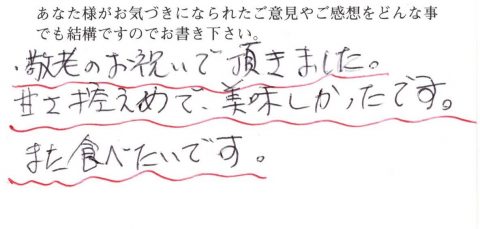 あなた様がお気づきになられたご意見やご感想をどんな事
でも結構ですのでお書き下さい。
・敬老のお祝いで頂きました。
甘さ控えめで、美味しかったです。
また食べたいです。